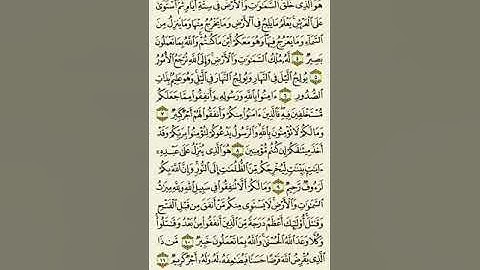 هُوَ ٱلَّذِى خَلَقَ ٱلسَّمَٰوَٰتِ وَٱلْأَرْضَ فِى سِتَّةِ أَيَّامٍ ثُمَّ ٱسْتَوَىٰ
عَلَى ٱلْعَرْشِ يَعْلَمُ مَا يَلِجُ فِى ٱلْأَرْضِ وَمَا يَخْرُجُ مِنْهَا وَمَا يَنزِلُ مِنَ
ٱلسَّمَآءِ وَمَا يَعْرُجُ فِيهَا وَهُوَ مَعَكُمْ أَيْنَ مَا كُنتُمْ وَٱللَّهُ بِمَا تَعْمَلُونَ
بَصِيرٌ ٤ لَّهُۥ مُلْكُ ٱلسَّمَٰوَٰتِ وَٱلْأَرْضِ وَإِلَى ٱللَّهِ تُرْجَعُ ٱلْأُمُورُ
٥ يُولِجُ ٱلَّيْلَ فِى ٱلنَّهَارِ وَيُولِجُ ٱلنَّهَارَ فِى ٱلَّيْلِ وَهُوَ عَلِيمٌۢ بِذَاتِ
ٱلصُّدُورِ ٦ ءَامِنُوا۟ بِٱللَّهِ وَرَسُولِهِۦ وَأَنفِقُوا۟ مِمَّا جَعَلَكُم
مُّسْتَخْلَفِينَ فِيهِ فَٱلَّذِينَ ءَامَنُوا۟ مِنكُمْ وَأَنفَقُوا۟ لَهُمْ أَجْرٌ كَبِيرٌ ٧
وَمَا لَكُمْ لَا تُؤْمِنُونَ بِٱللَّهِ وَٱلرَّسُولُ يَدْعُوكُمْ لِتُؤْمِنُوا۟ بِرَبِّكُمْ وَقَدْ
أَخَذَ مِيثَٰقَكُمْ إِن كُنتُم مُّؤْمِنِينَ ٨ هُوَ ٱلَّذِى يُنَزِّلُ عَلَىٰ عَبْدِهِۦٓ
ءَايَٰتٍۭ بَيِّنَٰتٍ لِّيُخْرِجَكُم مِّنَ ٱلظُّلُمَٰتِ إِلَى ٱلنُّورِ وَإِنَّ ٱللَّهَ بِكُمْ
لَرَءُوفٌ رَّحِيمٌ ٩ وَمَا لَكُمْ أَلَّا تُنفِقُوا۟ فِى سَبِيلِ ٱللَّهِ وَلِلَّهِ مِيرَٰثُ
ٱلسَّمَٰوَٰتِ وَٱلْأَرْضِ لَا يَسْتَوِى مِنكُم مَّنْ أَنفَقَ مِن قَبْلِ ٱلْفَتْحِ
وَقَٰتَلَ أُو۟لَٰٓئِكَ أَعْظَمُ دَرَجَةً مِّنَ ٱلَّذِينَ أَنفَقُوا۟ مِنۢ بَعْدُ وَقَٰتَلُوا۟
وَكُلًّا وَعَدَ ٱللَّهُ ٱلْحُسْنَىٰ وَٱللَّهُ بِمَا تَعْمَلُونَ خَبِيرٌ ١٠ مَّن ذَا
ٱلَّذِى يُقْرِضُ ٱللَّهَ قَرْضًا حَسَنًا فَيُضَٰعِفَهُۥ لَهُۥ وَلَهُۥٓ أَجْرٌ كَرِيمٌ ١١